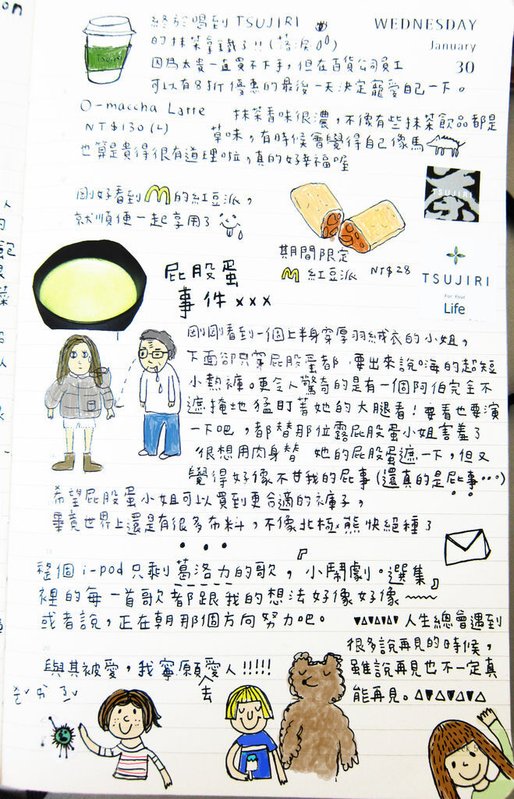 終於喝到 TSUJIRI
的抹茶拿鐵了!! (落淚)
WEDNESDAY
January
30
TSUJIRI
因為太貴一直買不下手，但在百貨公司員工
可以有8折優惠的最後一天決定寵愛自己一下。
O-maccha Latte
NT$130 (L)
抹茶香味很濃，不像有些抹茶飲品都是
草味，有時候會覺得自己像馬
也算是貴得很有道理啦，真的好幸福喔
剛好看到M的紅豆派，
就順便一起享用了
期間限定
M 紅豆派 NT$28
茶
TSUJIRI
TSUJIRI
For Your
Life
屁股蛋
事件xxx
剛剛看到一個上半身穿厚羽絨衣的小姐，
下面卻只穿屁股蛋都一要出來說嗨的超短
小熱褲。更令人驚奇的是有一個阿伯完全不
遮掩地猛盯著她的大腿看！要看也要演
一下吧，都替那位露屁股蛋小姐害羞了
很想用肉身替她的屁股蛋遮一下，但又
覺得好像不甘我的屁事(還真的是屁事…)
希望屁股蛋小姐可以買到更合適的褲子，
畢竟世界上還是有很多布料，不像北極熊快絕種了
整個 i-pod 只剩葛洛力的歌，『小鬧劇。選集』
裡的每一首歌都跟我的想法好像好像~~~
或者說，正在朝那個方向努力吧。
▼▲▼▲▼▲▼ 人生總會遇到
很多說再見的時候，
雖說再見也不一定真
能再見。▲▼▲▼▲▼▲▼
與其被愛，我寧願去愛人!!!!!